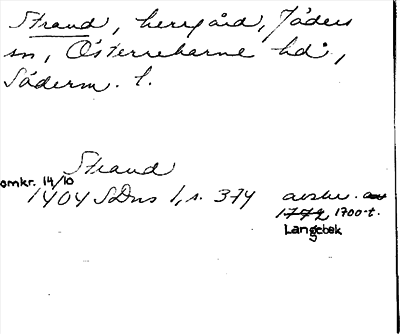 Strand, herrgård, Jäders
sn, Österrekarne hd,
Söderm. l.
Strand
omkr. 14/10
1404 SDns 1, s. 374 avskr.
1772 1700-t.
Langebek